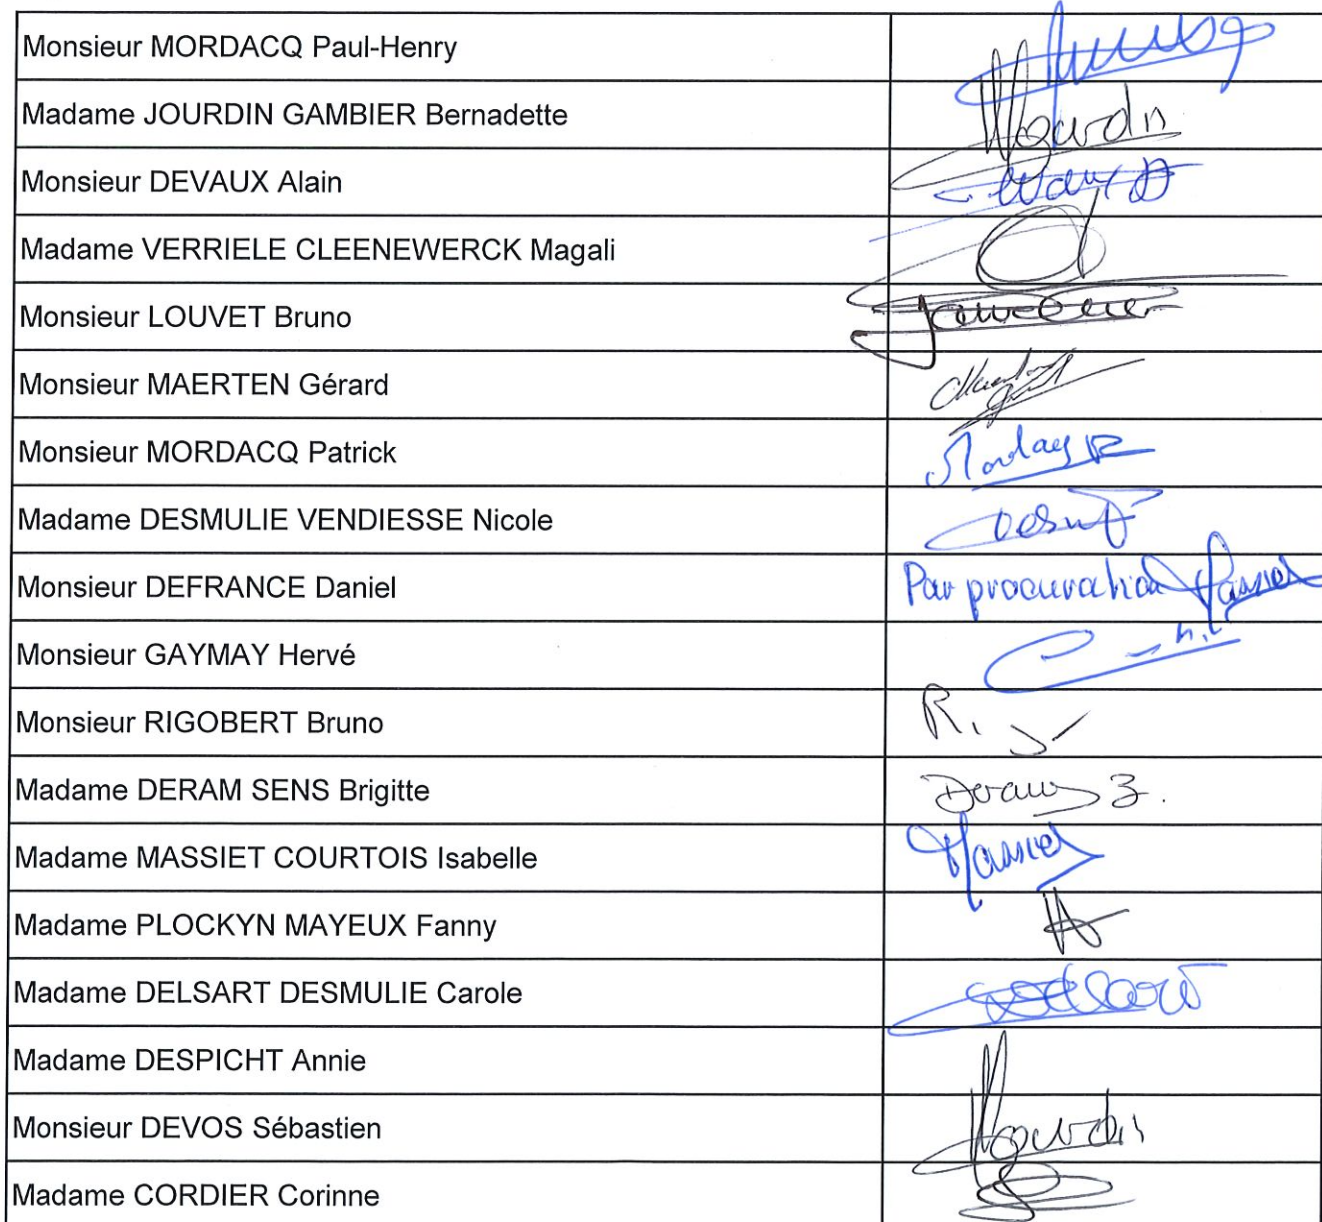 Monsieur MORDACQ Paul-Henry
Madame JOURDIN GAMBIER Bernadette
Jourdin
Monsieur DEVAUX Alain
Madame VERRIELE CLEENEWERCK Magali
Monsieur LOUVET Bruno
Monsieur MAERTEN Gérard
Monsieur MORDACQ Patrick
Madame DESMULIE VENDIESSE Nicole
Monsieur DEFRANCE Daniel
Par procuration Massiet
Monsieur GAYMAY Hervé
Monsieur RIGOBERT Bruno
Madame DERAM SENS Brigitte
Madame MASSIET COURTOIS Isabelle
Massiet
Madame PLOCKYN MAYEUX Fanny
Madame DELSART DESMULIE Carole
Madame DESPICHT Annie
Monsieur DEVOS Sébastien
Jourdin
Madame CORDIER Corinne